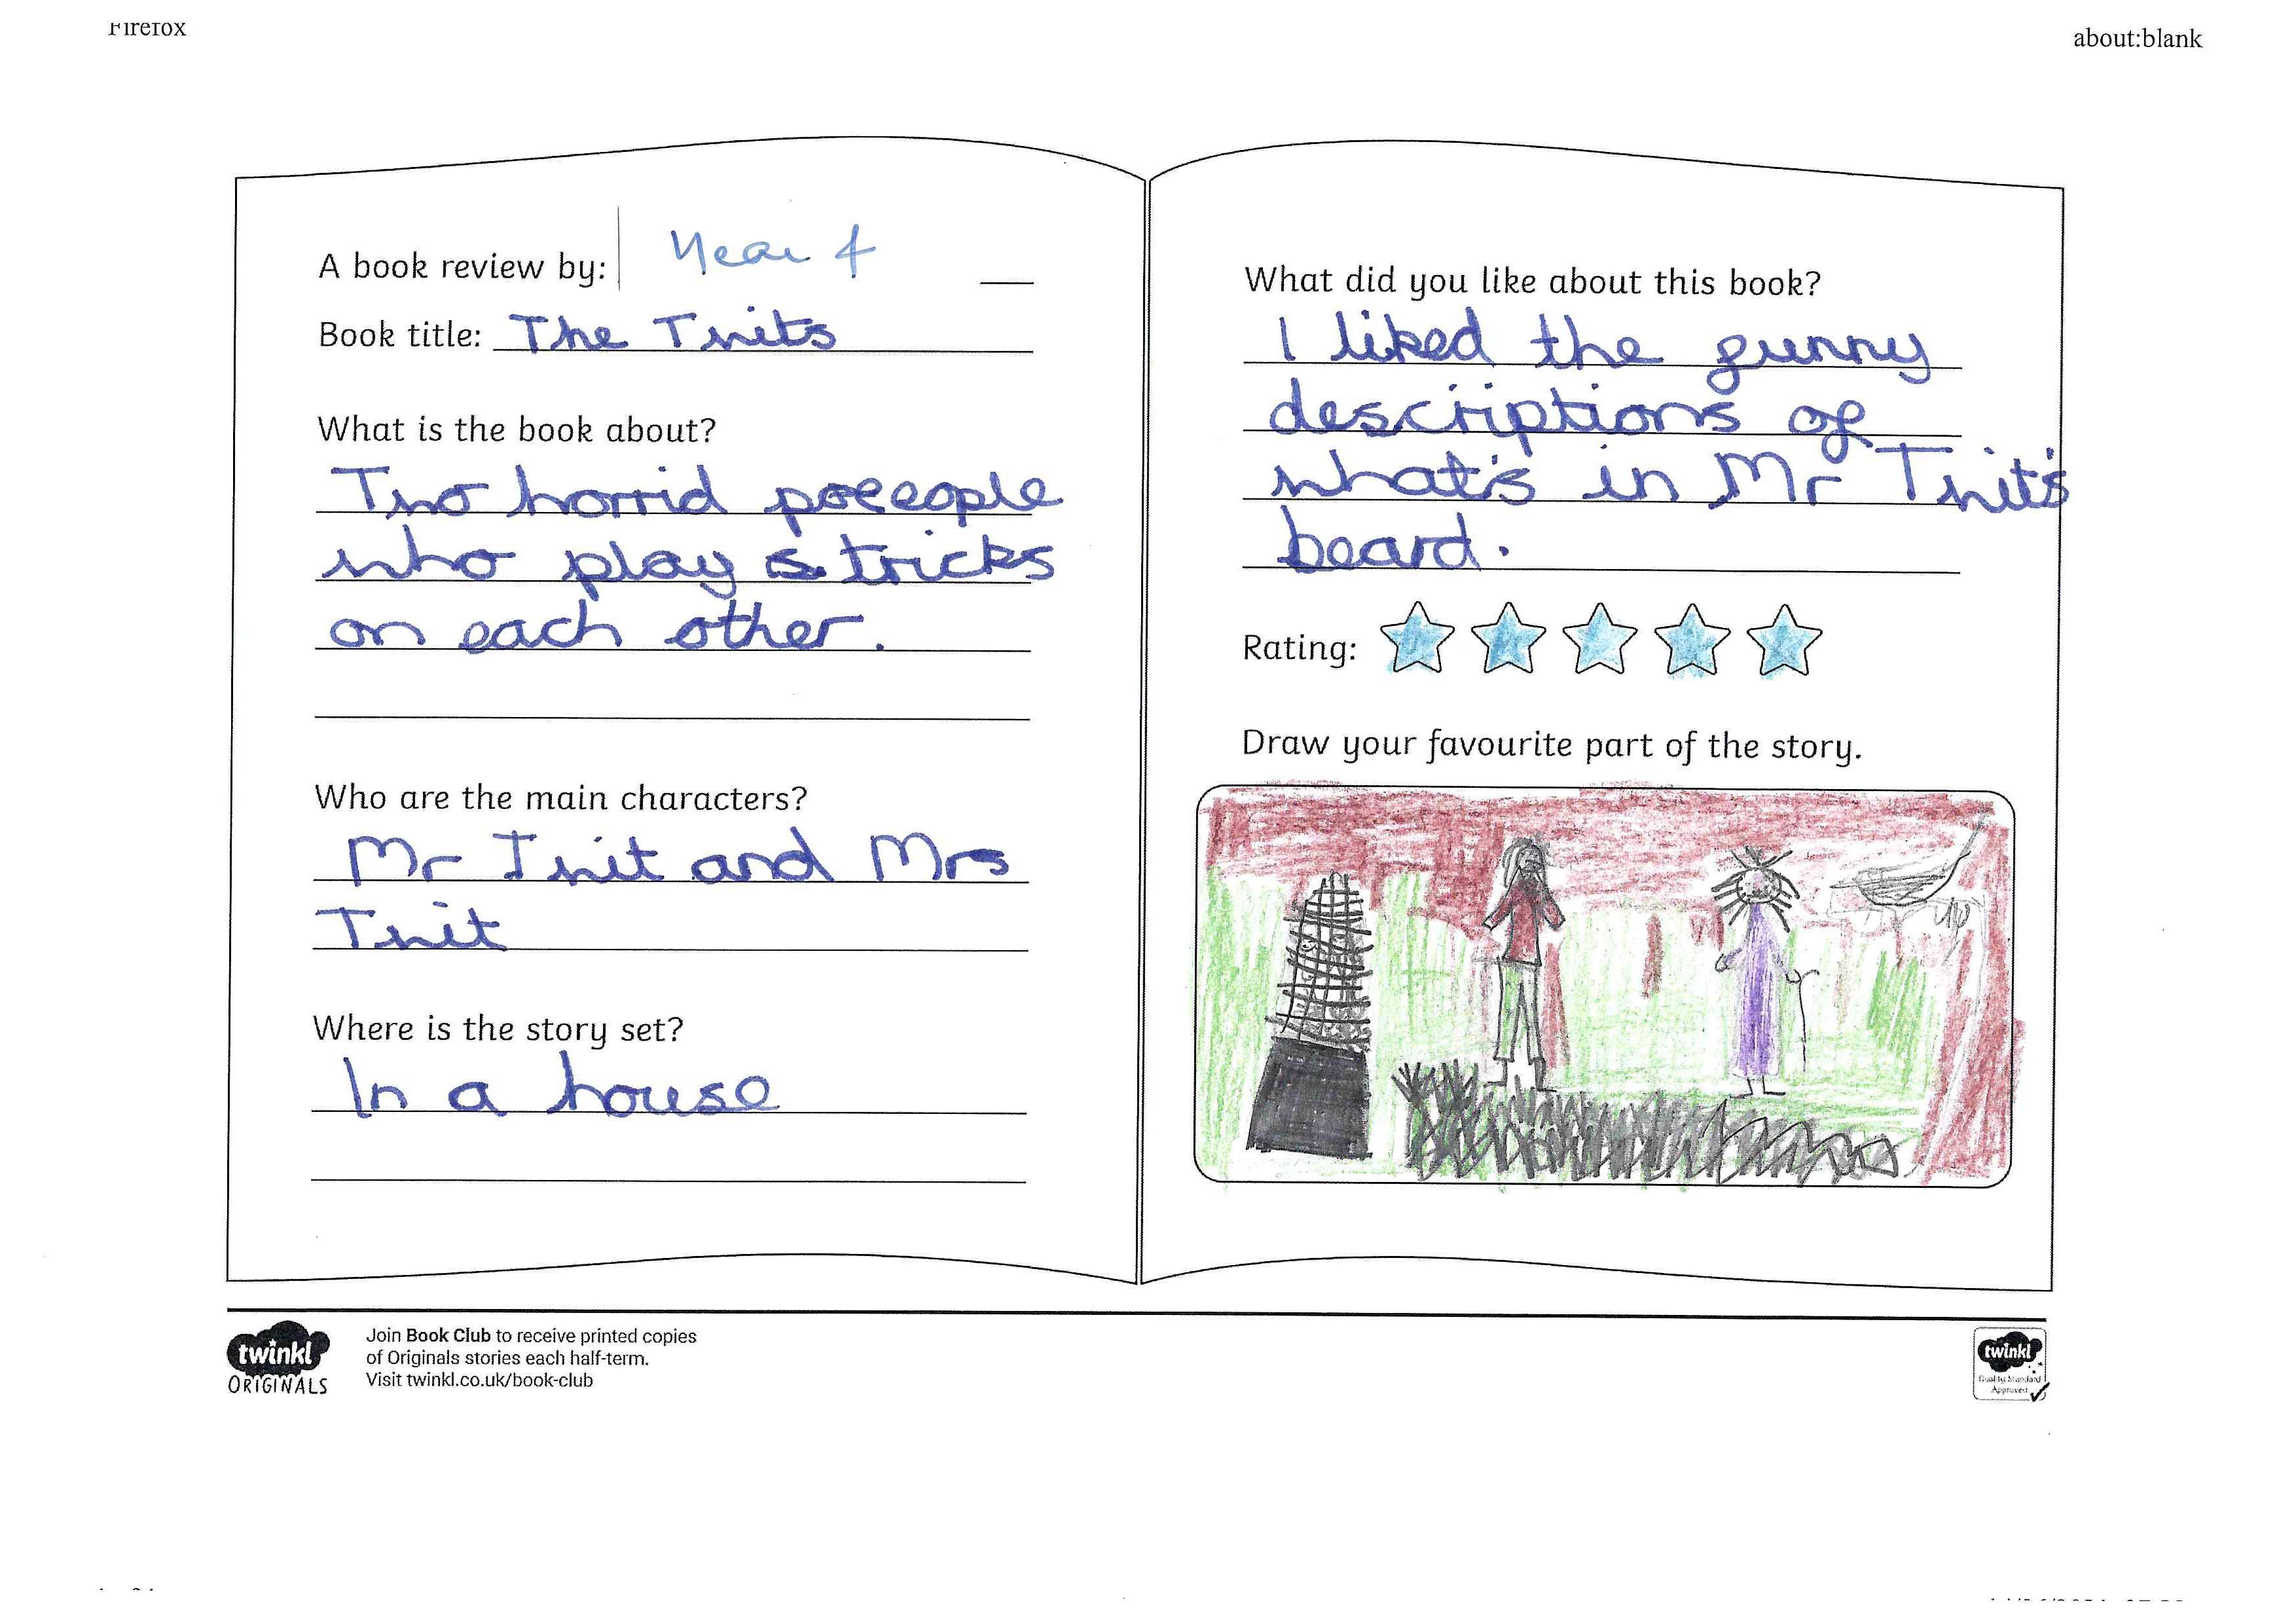 Firefox
about:blank
A book review by: Year 4
Book title: The Twits
What is the book about?
Two horrid poeeople
who play s tricks
on each other.
Who are the main characters?
Mr Twit and Mrs
Twit
Where is the story set?
In a house
What did you like about this book?
I liked the funny
descriptions of
what's in Mr Twit's
beard.
Rating:
Draw your favourite part of the story.
twinkl
ORIGINALS
Join Book Club to receive printed copies
of Originals stories each half-term.
Visit twinkl.co.uk/book-club
twinkl
Quality Standard
Approved